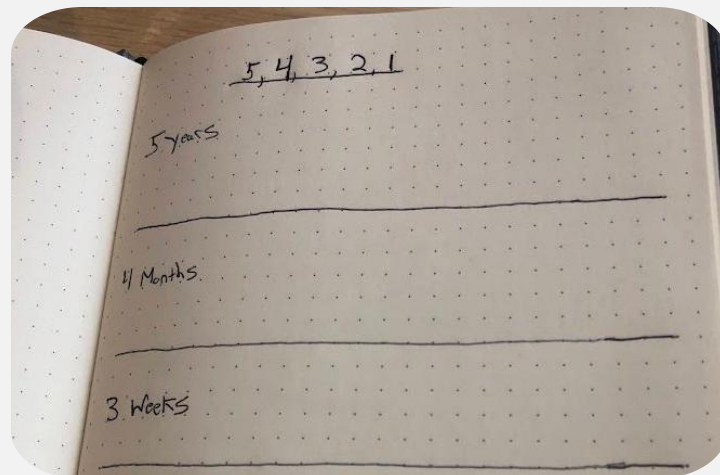 5, 4, 3, 2, 1
5 years
4 Months
3 Weeks